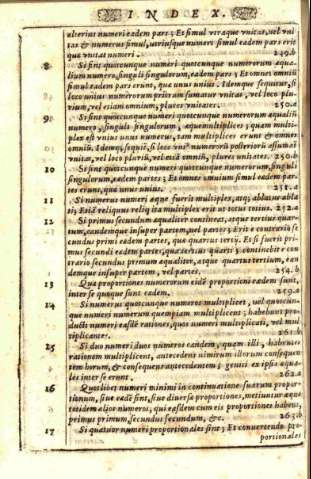 INDEX.
alterius numeri eadem pars; Et simul uterque unitas, vel uni
tas & numerus simul, utriusque numeri simul eadem pars erit
quæ unitas numeri. 249.b
8 Si sint quotcunque numeri quotcunque numerorum æqua-
lium numero, singuli singulorum, eadem pars; Et omnes omniū
simul eadem pars erunt, quæ unus unius. Idemque sequetur, si
loco unius numerorum sumatur unitas, vel loco plu-
rium, vel etiam omnium, plures unitates. 250.a
9 Sint quotcunque numeri quotcunque numerorum æqualiū
numero, singuli singulorum, æquemultiplices; quàm multi-
plex est unus unius numerus, tam multiplices erunt & omnes
omniū. Idemq; sequit, si loco uni' numerorū posteriorū assumat
unitas, vel loco pluriū, vel etiā omniū, plures unitates. 250.b
10 Sint quotcunque numeri quotcunque numerorum, singuli
singulorum, eadem partes; Et omnes omnium simul eædem par-
tes erunt, quæ unus unius. 251.a
11 Si numerus numeri æque fuerit multiplex, atq; ablatus abla
ti; Etiā reliquus reliqui ita multiplex erit ut totus totius. 252.a
12 Si primus secundum æqualiter contineat, atque tertius quar-
tum, eandemque insuper partem, vel partes; & erit è contrario se
cundus primi eædem partes, quæ quartus tertij. Et si fuerit pri-
mus secundi eædem partes, quæ tertius quarti; continebit è con
trario secundus primum æqualiter, atque quartus tertium, ean
demque insuper partem, vel partes. 254.b
13 Quæ proportiones numerorum eidē proportioni eædem sunt,
inter se quoque sunt eædem. 259.a
14 Si numerus quotcunque numeros multiplicet, vel quotcun-
que numeri numerum quempiam multiplicent; habebunt pro-
ducti numeri easdē rationes, quas numeri multiplicati, vel mul
tiplicantes. 261.b
25 Si duo numeri duos numeros eandem, quam illi, habentes
rationem multiplicent, antecedens nimirum illorum consequen
tem horum, & consequens antecedentem; geniti ex ipsis æqua
les inter se erunt. 262.a
16 Quotlibet numeri minimi in continuatione suarum propor-
tionum, siue eædē sint, siue diuersæ proportiones, metiuntur æque
totidem alios numeros, qui easdem cum eis proportiones habent,
primus primum, secundus secundum, &c. 263.b
17 Si quatuor numeri proportionales sint; Et conuertendo pro-
portionales